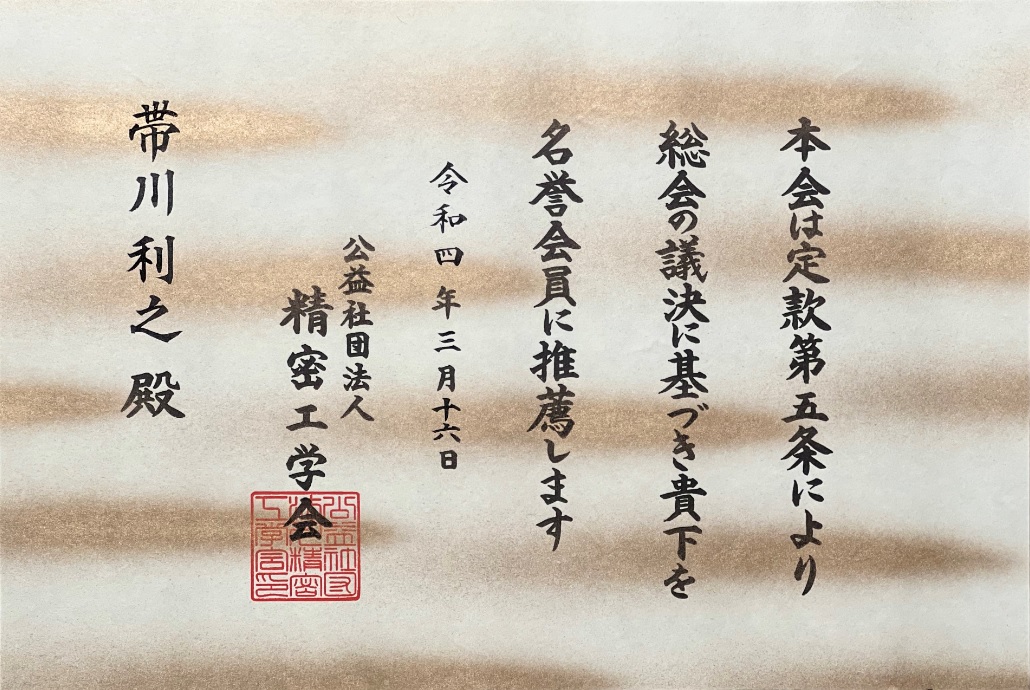 本会は定款第五条により
総会の議決に基づき貴下を
名誉会員に推薦します
令和四年三月十六日
公益社団法人
精密工学会
帯川利之殿